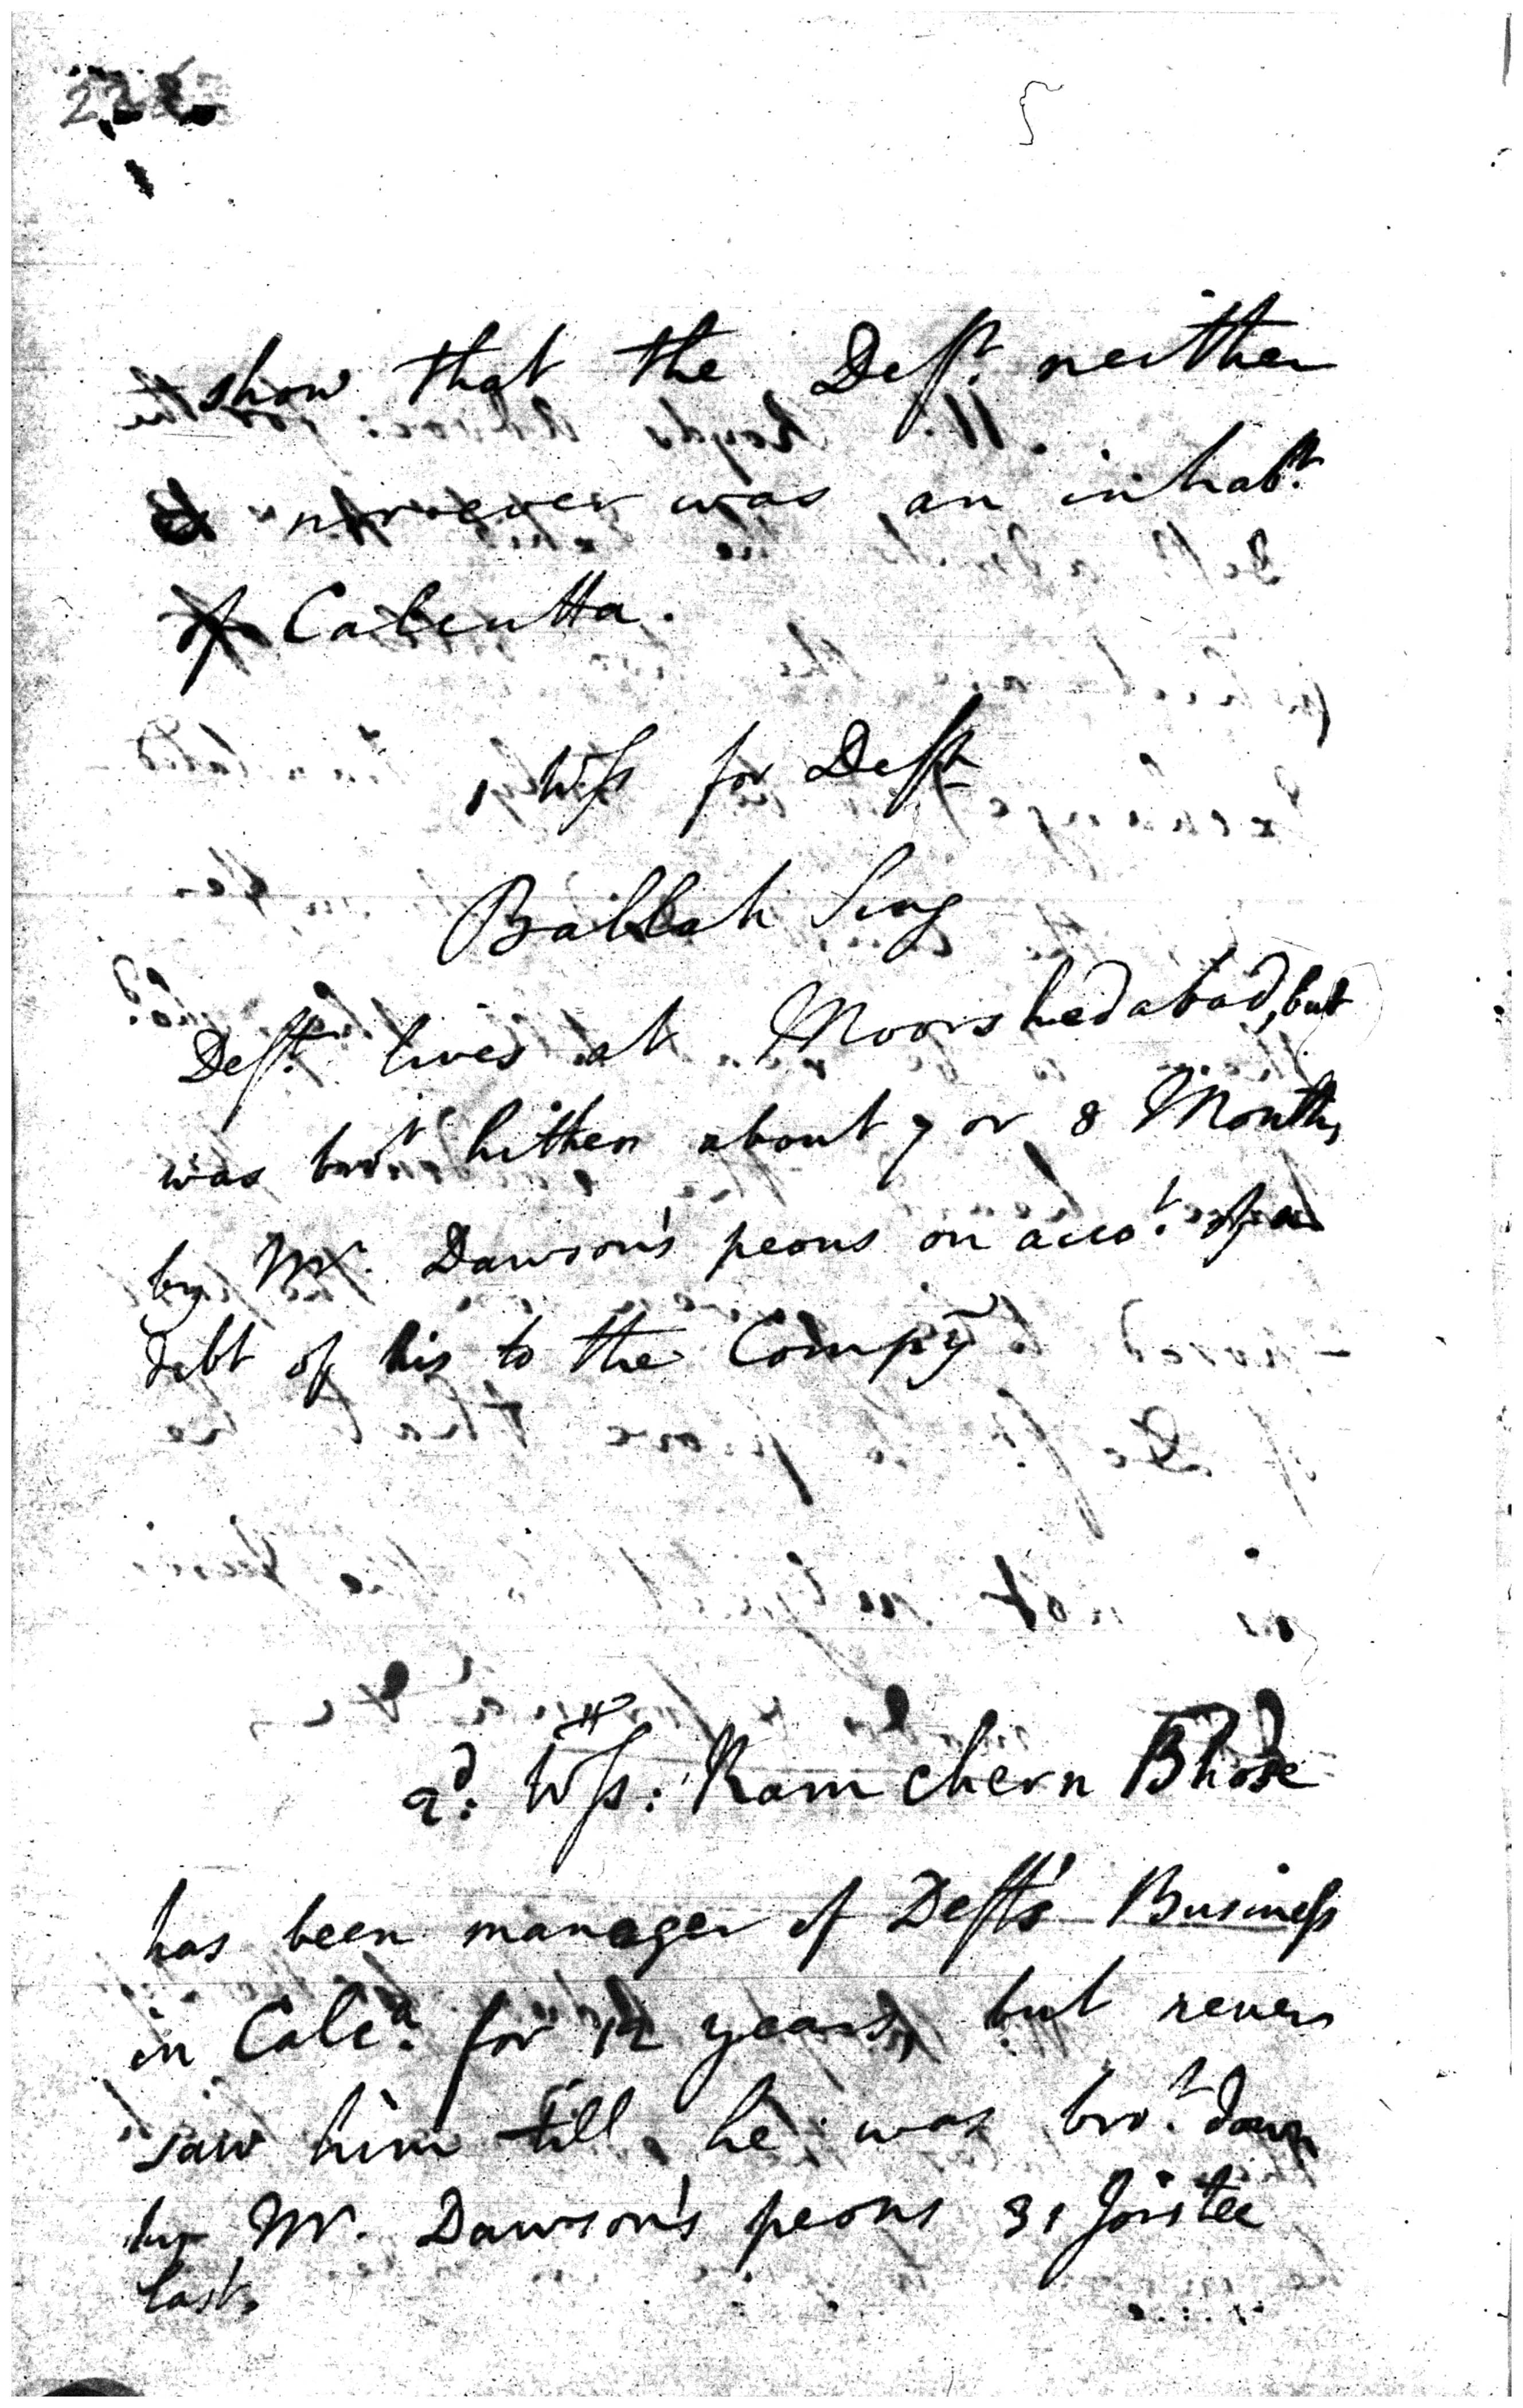 show that the Deft. neither
nor ever was an inhabt.
of Calcutta.
1 Wss for Deft
Ballah Sing
Deft. lives at Moorshedabad, but
was brot hither about 7 or 8 Months
by Mr. Dawson's peons on accot. of a
debt of his to the Compy
2d. Wss: Ram Chern Bhose
has been manager of Deft's Business
in Calca. for 12 years, but never
saw him till he was brot. down
by Mr. Dawson's peons 31 Joistee
last.